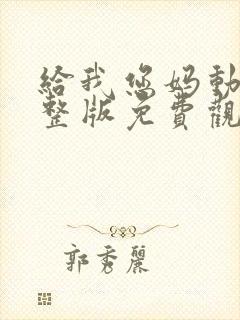 給我您媽動
整版免費觀
郭秀麗